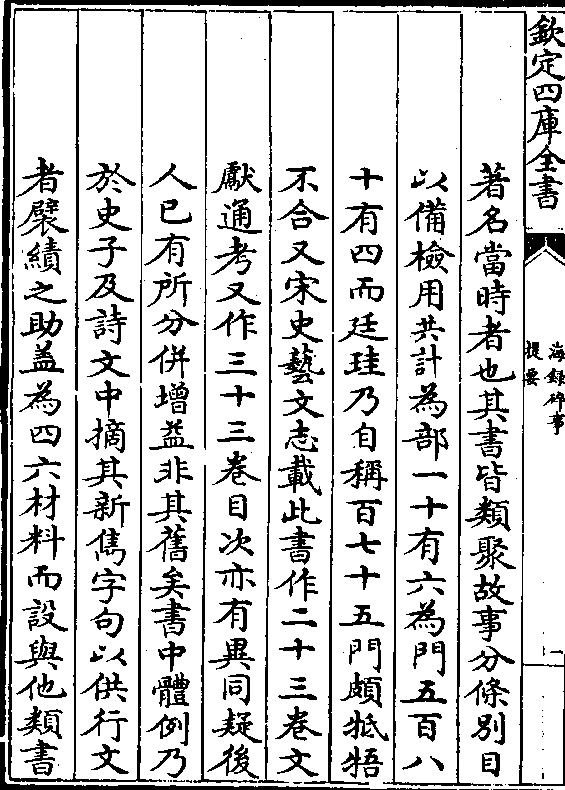 欽定四庫全書
海録碎事
提要
一
著名當時者也其書皆類聚故事分條別目
以備檢用共計為部一十有六為門五百八
十有四而廷珪乃自稱百七十五門頗牴牾
不合又宋史藝文志載此書作二十三卷文
獻通考又作三十三卷目次亦有異同疑後
人已有所分併增益非其舊矣書中體例乃
於史子及詩文中摘其新雋字句以供行文
者襞績之助盖為四六材料而設與他類書